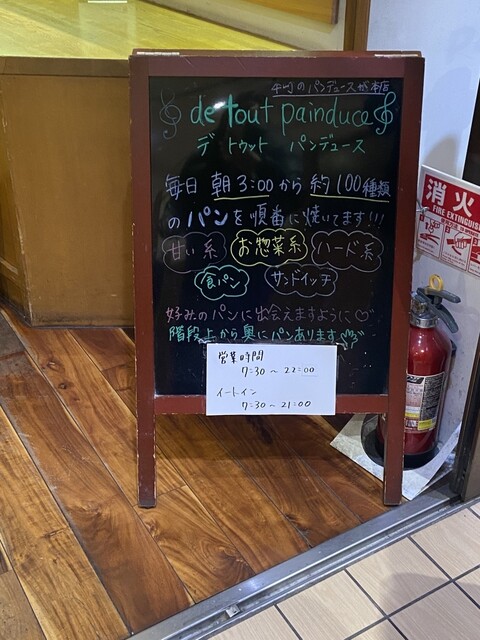 本町のパンデュースが本店
de tout painduce
デ トゥット パンデュース
毎日 朝3:00から 約100種類
のパンを順番に焼いてます!!!
甘い系 お惣菜系 ハード系
食パン サンドイッチ
好みのパンに出会えますように♡
階段上がら奥にパンあります
営業時間
7:30～22:00
イートイン
7:30～21:00
消火
FIRE EXTINGUIS